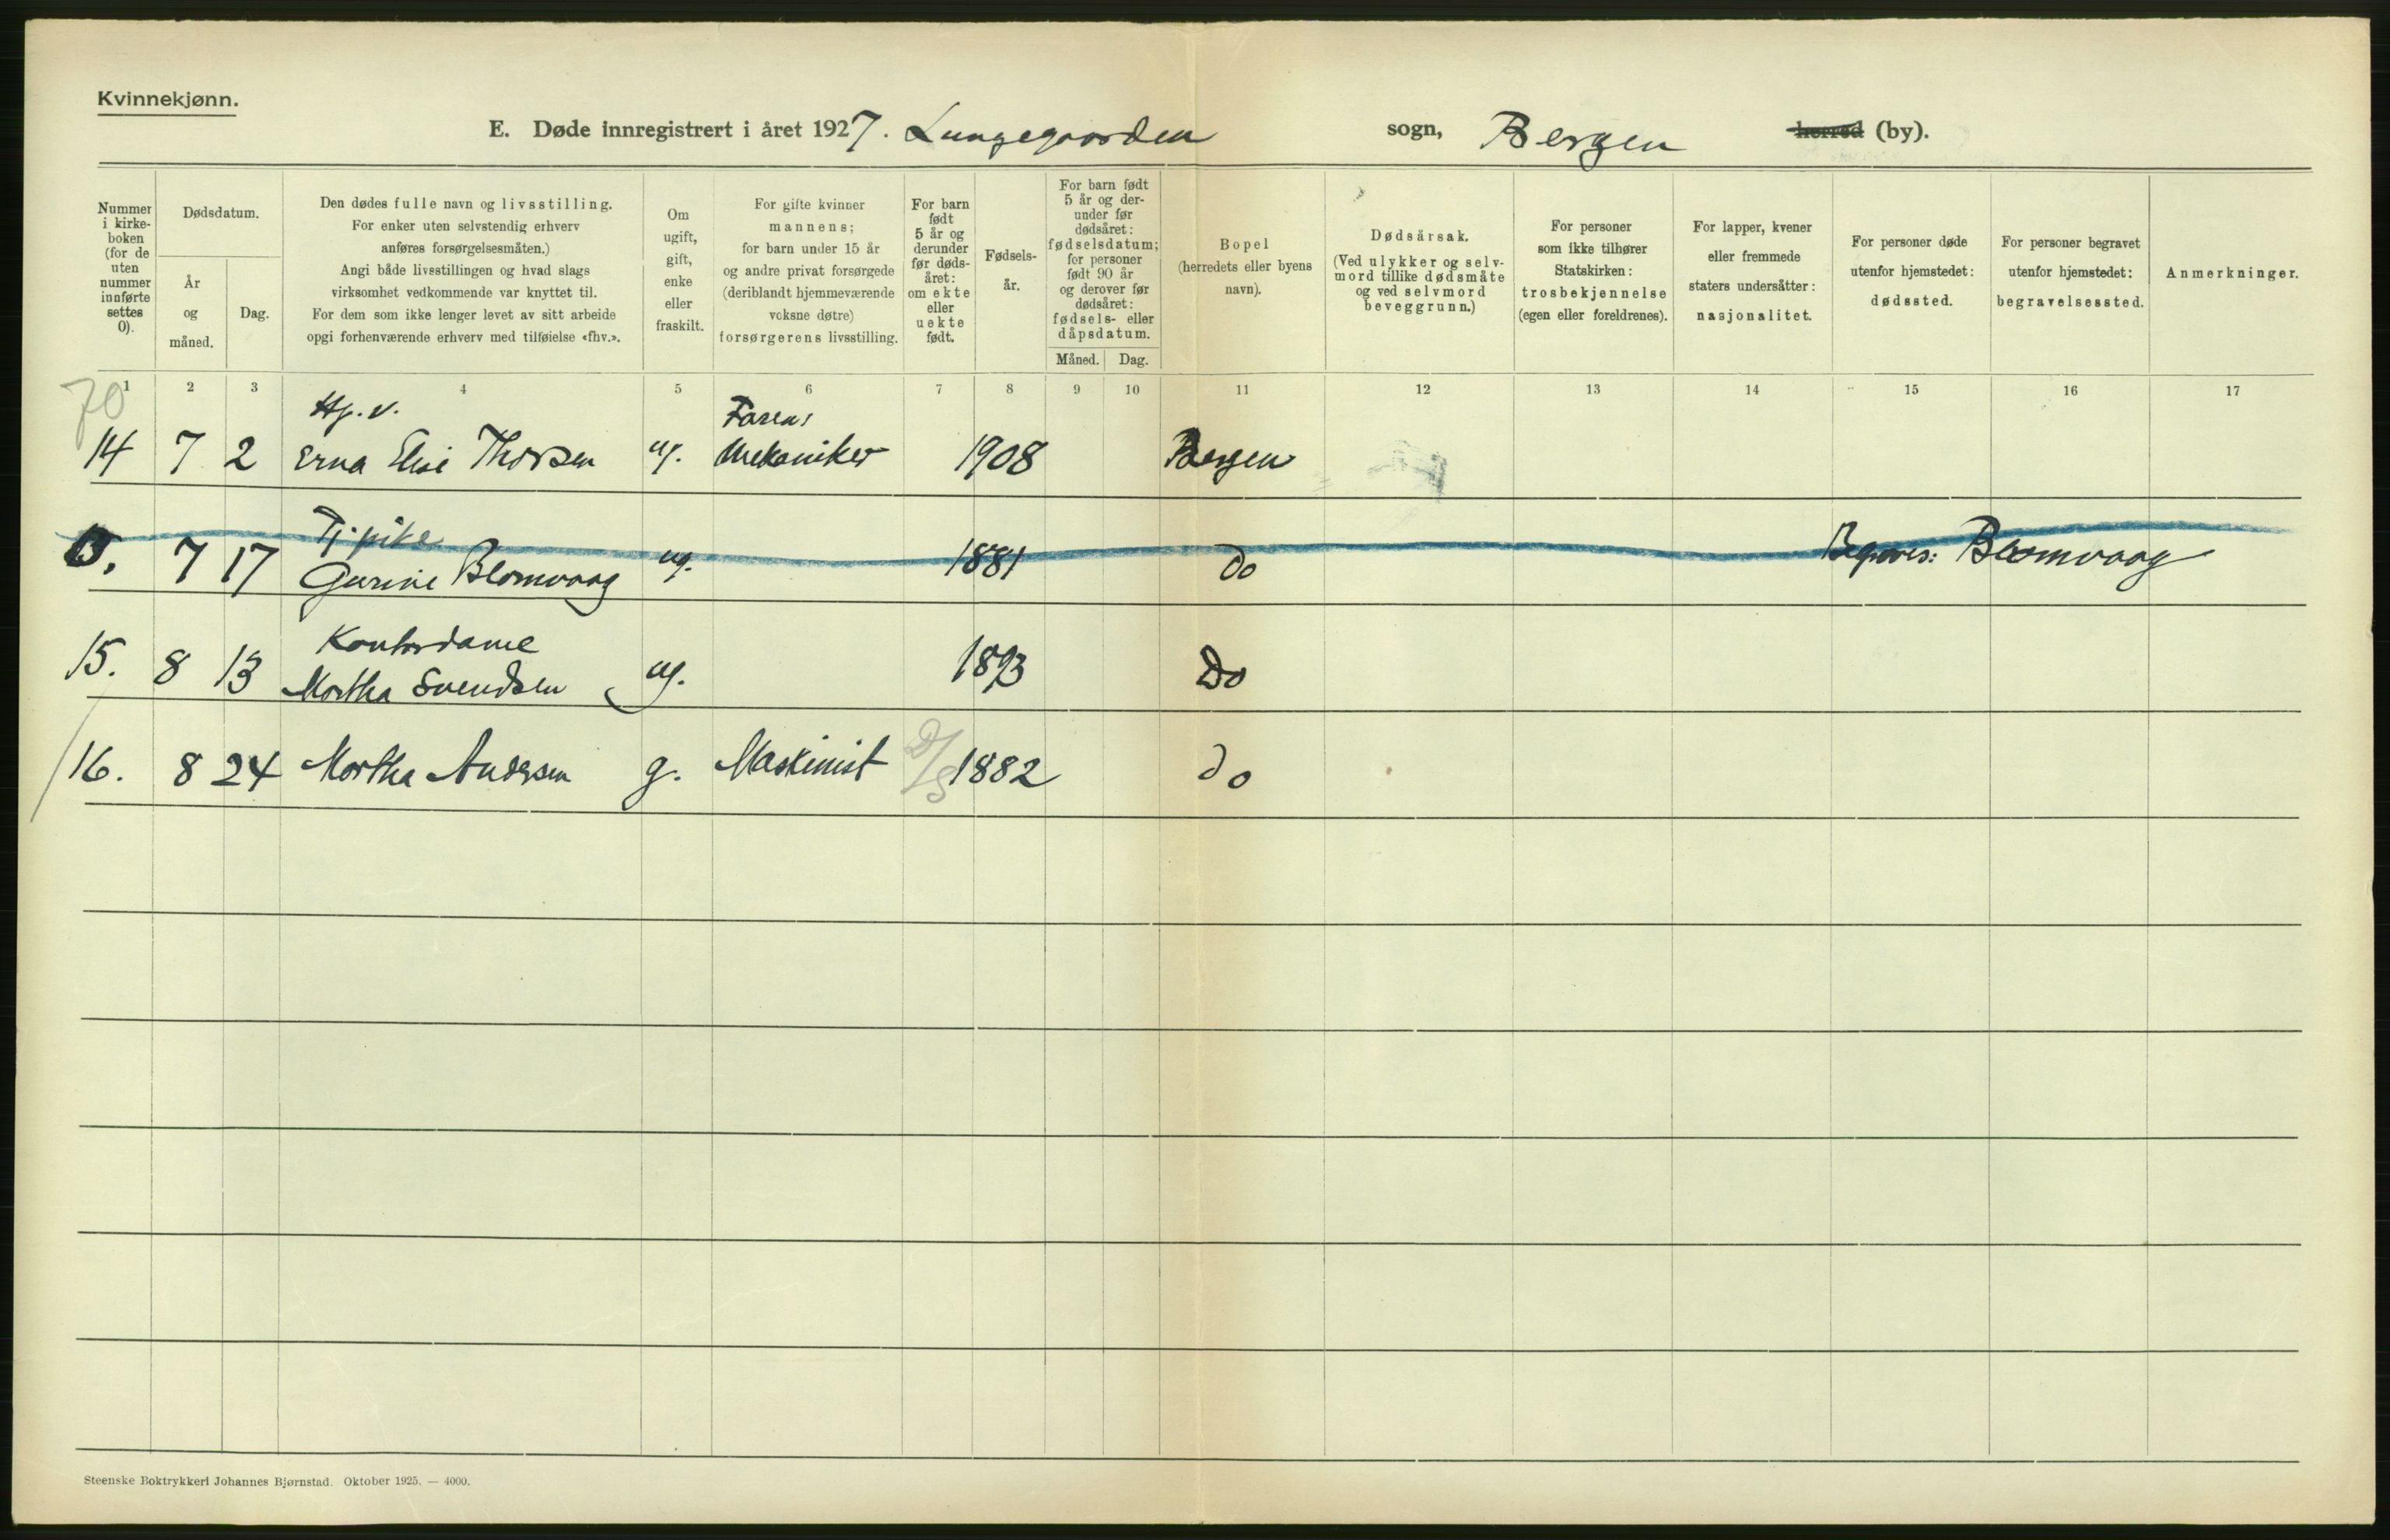 Kvinnekjønn.
E. Døde innregistrert i året 1927. Lungegaarden sogn, Bergen herred (by).
Nummer i kirke-boken (for de uten nummer innførte settes 0).
Dødsdatum.
År og måned.
Dag.
Den dødes fulle navn og livsstilling.
For enker uten selvstendig erhverv
anføres forsørgelsesmåten.)
Angi både livsstillingen og hvad slags
virksomhet vedkommende var knyttet til.
For dem som ikke lenger levet av sitt arbeide
opgi forhenværende erhverv med tilføielse «fhv.».
Om ugift, gift, enke eller fraskilt.
For gifte kvinner
mannens;
for barn under 15 år
og andre privat forsørgede
(deriblandt hjemmeværende
voksne døtre)
forsørgerens livsstilling.
For barn født 5 år og derunder før døds-året: om ekte eller uekte født.
Fødsels-år.
For barn født 5 år og der-under før dødsåret: fødselsdatum; for personer født 90 år og derover før dødsåret: fødsels- eller dåpsdatum.
Måned. Dag.
Bopel
(herredets eller byens
navn).
Dødsårsak.
(Ved ulykker og selv-
mord tillike dødsmåte
og ved selvmord
beveggrunn.)
For personer
som ikke tilhører
Statskirken:
trosbekjennelse
(egen eller foreldrenes).
For lapper, kvener
eller fremmede
staters undersåtter:
nasjonalitet.
For personer døde
utenfor hjemstedet:
dødssted.
For personer begravet
utenfor hjemstedet:
begravelsessted.
Anmerkninger.
1 2 3 4 5 6 7 8 9 10 11 12 13 14 15 16 17
70
Hj. v. Farens
14 7 2 Erna Elise Thorsen ug. Mekaniker 1908 Bergen
Tj. pike
0. 7 17 Gurine Blomvaag ug. 1881 do Begraves: Blomvaag
Kontordame
15. 8 13 Martha Svendsen ug. 1893 Do
16. 8 24 Martha Andersen g. Maskinist 1882 do
Steenske Boktrykkeri Johannes Bjørnstad. Oktober 1925. — 4000.